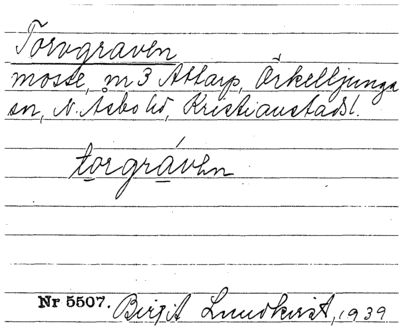 Torvgraven
mosse, m 3 Attarp, Örkelljunga
sn, N. Åsbo hd, Kristianstads l.
torgráven
Nr 5507. Birgit Lundkvist, 1939